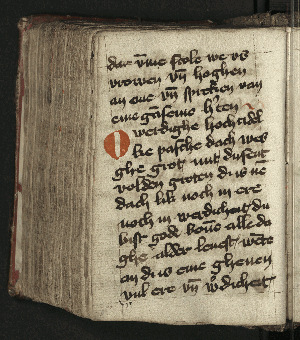 dar vm̄e scole we vs
vrowen vn̄ hoghen
an eme vn̄ spreken van
eme herten
O werdighe hochtidel
ke pasche dach wes
ghe grot mit dusent
volden groten du is nē
dach lik noch in ere
noch in werdicheit du
bist gode bouē alle da
ghe alder leuest wēte
an dus eme gheuen
vul ere vn̄ wdicheit